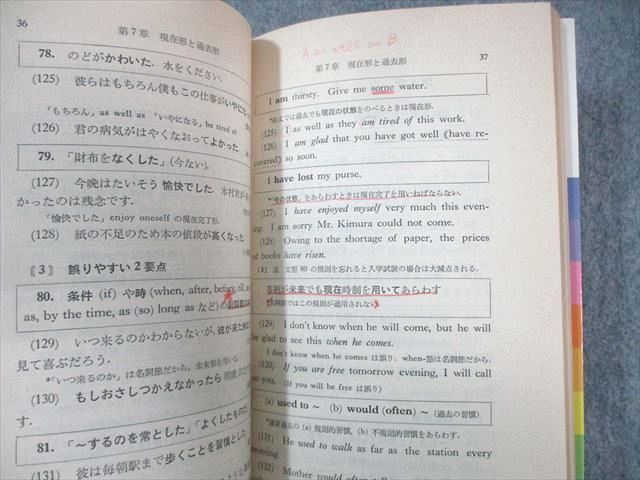 36
第7章 現在形と過去形
78. のどがかわいた. 水をください.
(125) 彼らはもちろん僕もこの仕事がいやに
「もちろん」as well as 「いやになる」be tired of
(126) 君の病気がはやくなおってよかった.
79. 「財布をなくした」(今ない).
(127) 今晩はたいそう 愉快でした. 木村君が
かったのは残念です.
「愉快でした」enjoy oneself の現在完了形.
(128) 紙の不足のため本の値段が高くなった
〖3〗 誤りやすい2要点
80. 条件 (if) や時 (when, after, before, till,
as, by the time, as (so) long as など) の
(129) いつ来るのかわからないが, 彼が来た
見て喜ぶだろう.
*「いつ来るのか」は名詞節だから, 未来形を用いる.
(130) もしおさしつかえなかったら 明晩
81. 「~するのを常とした」「よくしたものだ
(131) 彼は毎朝駅まで歩くことを習慣とし
A as well as B
第7章 現在形と過去形
37
I am thirsty. Give me some water.
*和文では過去でも現在の状態をのべるときは現在形.
(125) I as well as they am tired of this work.
(126) I am glad that you have got well (have re-
covered) so soon.
I have lost my purse.
*「今の状態」をあらわすときは現在完了を用いねばならない.
(127) I have enjoyed myself very much this eve-
ning. I am sorry Mr. Kimura could not come.
(128) Owing to the shortage of paper, the prices
of books have risen.
〖3〗 注 文型 80 の規則を忘れると入学試験の場合は大減点される.
事柄が未来でも現在時制を用いてあらわす
名詞節ではこの規則が適用されない
(129) I don't know when he will come, but he will
be glad to see this when he comes.
I don't know when he comes は誤り. when-節は名詞節だから.
(130) If you are free tomorrow evening, I will call
you. (If you will be free は誤り)
(a) used to ~ (b) would (often) ~ (過去の習慣)
(a) 規則的習慣, (b) 不規則的習慣をあらわす.
(131) He used to walk as far as the station every
morning.
(132) Mother would often